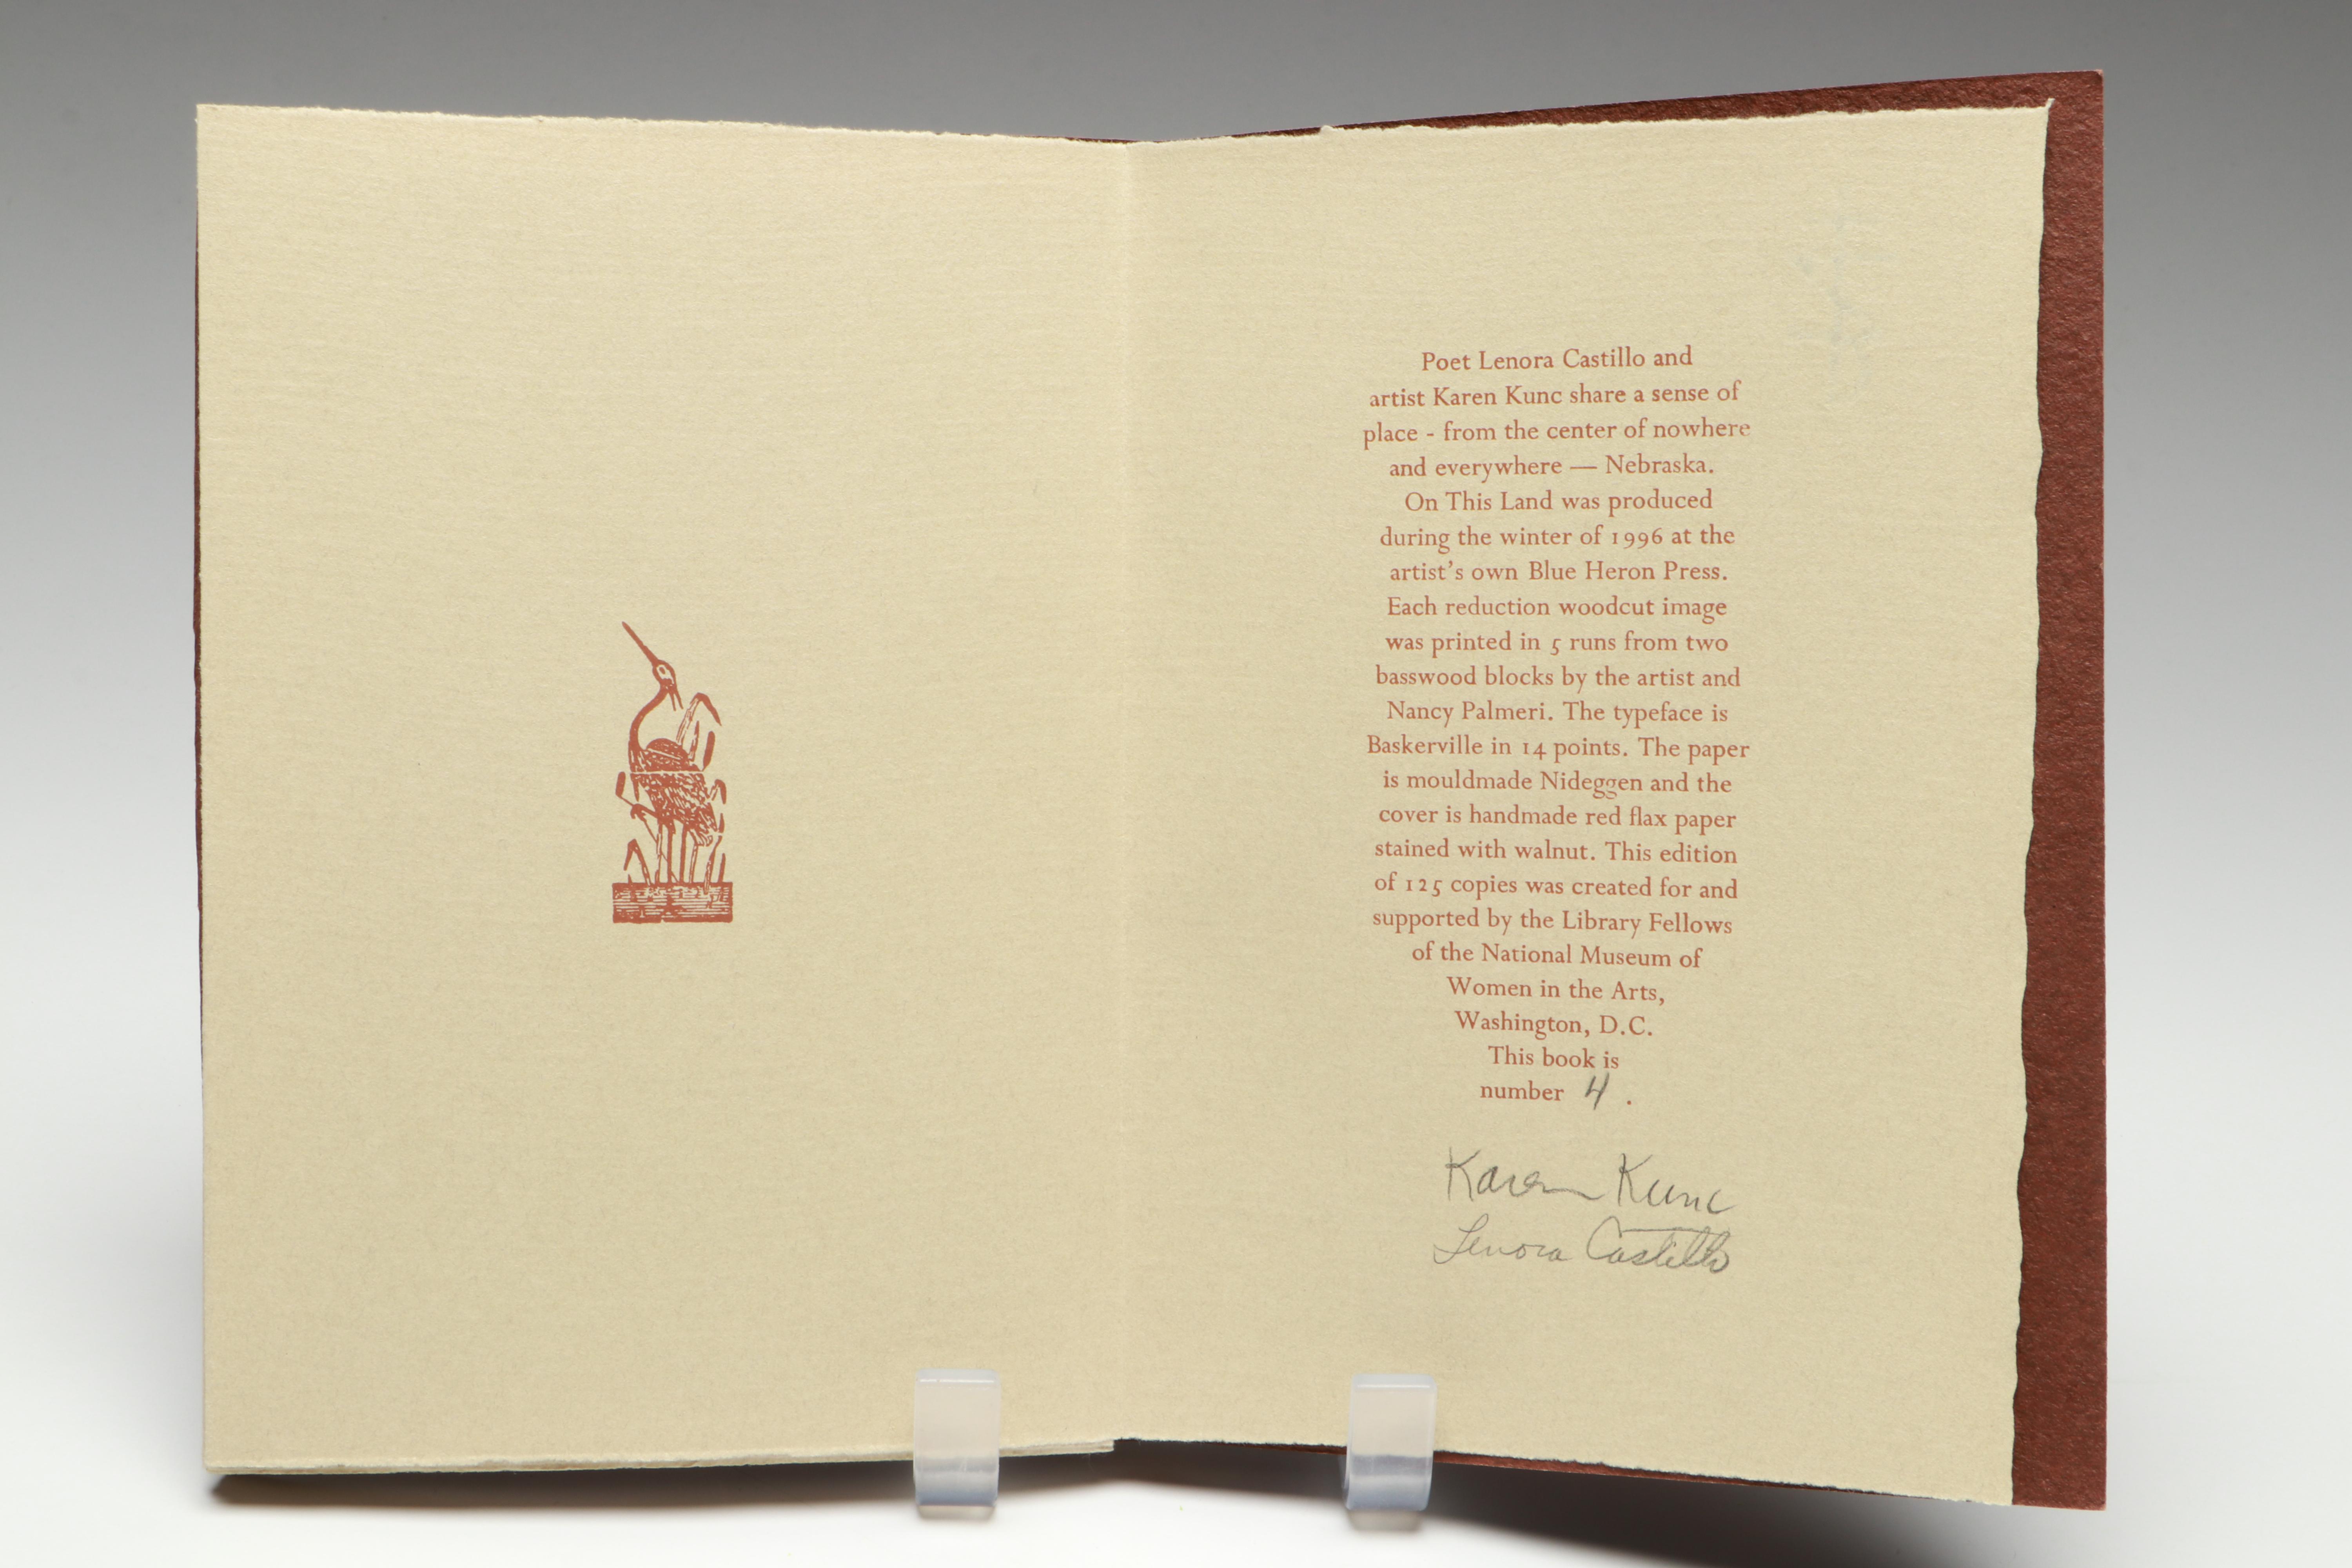 Poet Lenora Castillo and
artist Karen Kunc share a sense of
place - from the center of nowhere
and everywhere — Nebraska.
On This Land was produced
during the winter of 1996 at the
artist's own Blue Heron Press.
Each reduction woodcut image
was printed in 5 runs from two
basswood blocks by the artist and
Nancy Palmeri. The typeface is
Baskerville in 14 points. The paper
is mouldmade Nideggen and the
cover is handmade red flax paper
stained with walnut. This edition
of 125 copies was created for and
supported by the Library Fellows
of the National Museum of
Women in the Arts,
Washington, D.C.
This book is
number 4 .
Karen Kunc
Lenora Castillo